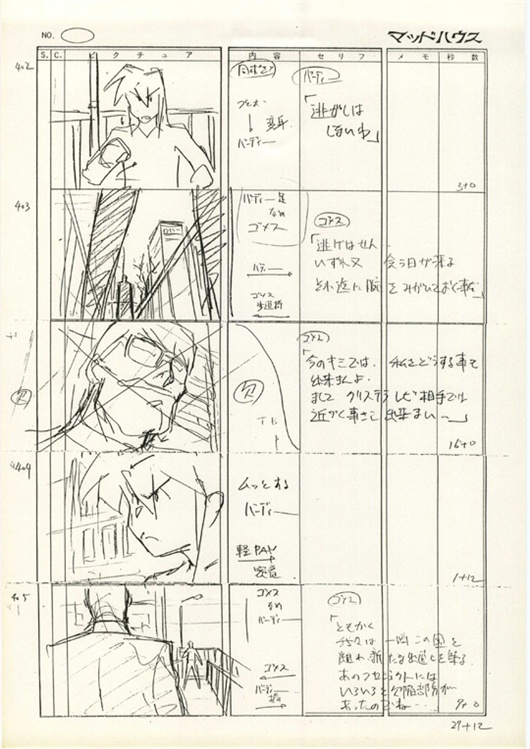 NO.
マッドハウス
S. C. ピクチュア 内容 セリフ メモ 秒数
402
バーディー
「逃がしは
しないわ」
変身
バーディー
3+0
403
バーディー足
なめ
ゴメス
ゴメス
「逃げはせん
いずれ又 会う日が来る
それ迄に腕をみがいておく事だ
バーディー
ゴメス
欠
欠
ゴメス
「今のキミでは、私をどうする事も
出来まんよ.
まして クリステラ レビ相手では
近づく事さえ出来まい―」
16+0
404
ムッとする
バーディー
軽PAN
密着
1+12
405
ゴメス
なめ
バーディー
ゴメス
バーディー
ゴメス
「ともかく
我々は一同この国を
離れ新たな
あの
いろいろと欠陥部分が
あったのでね…」
9+0
29+12